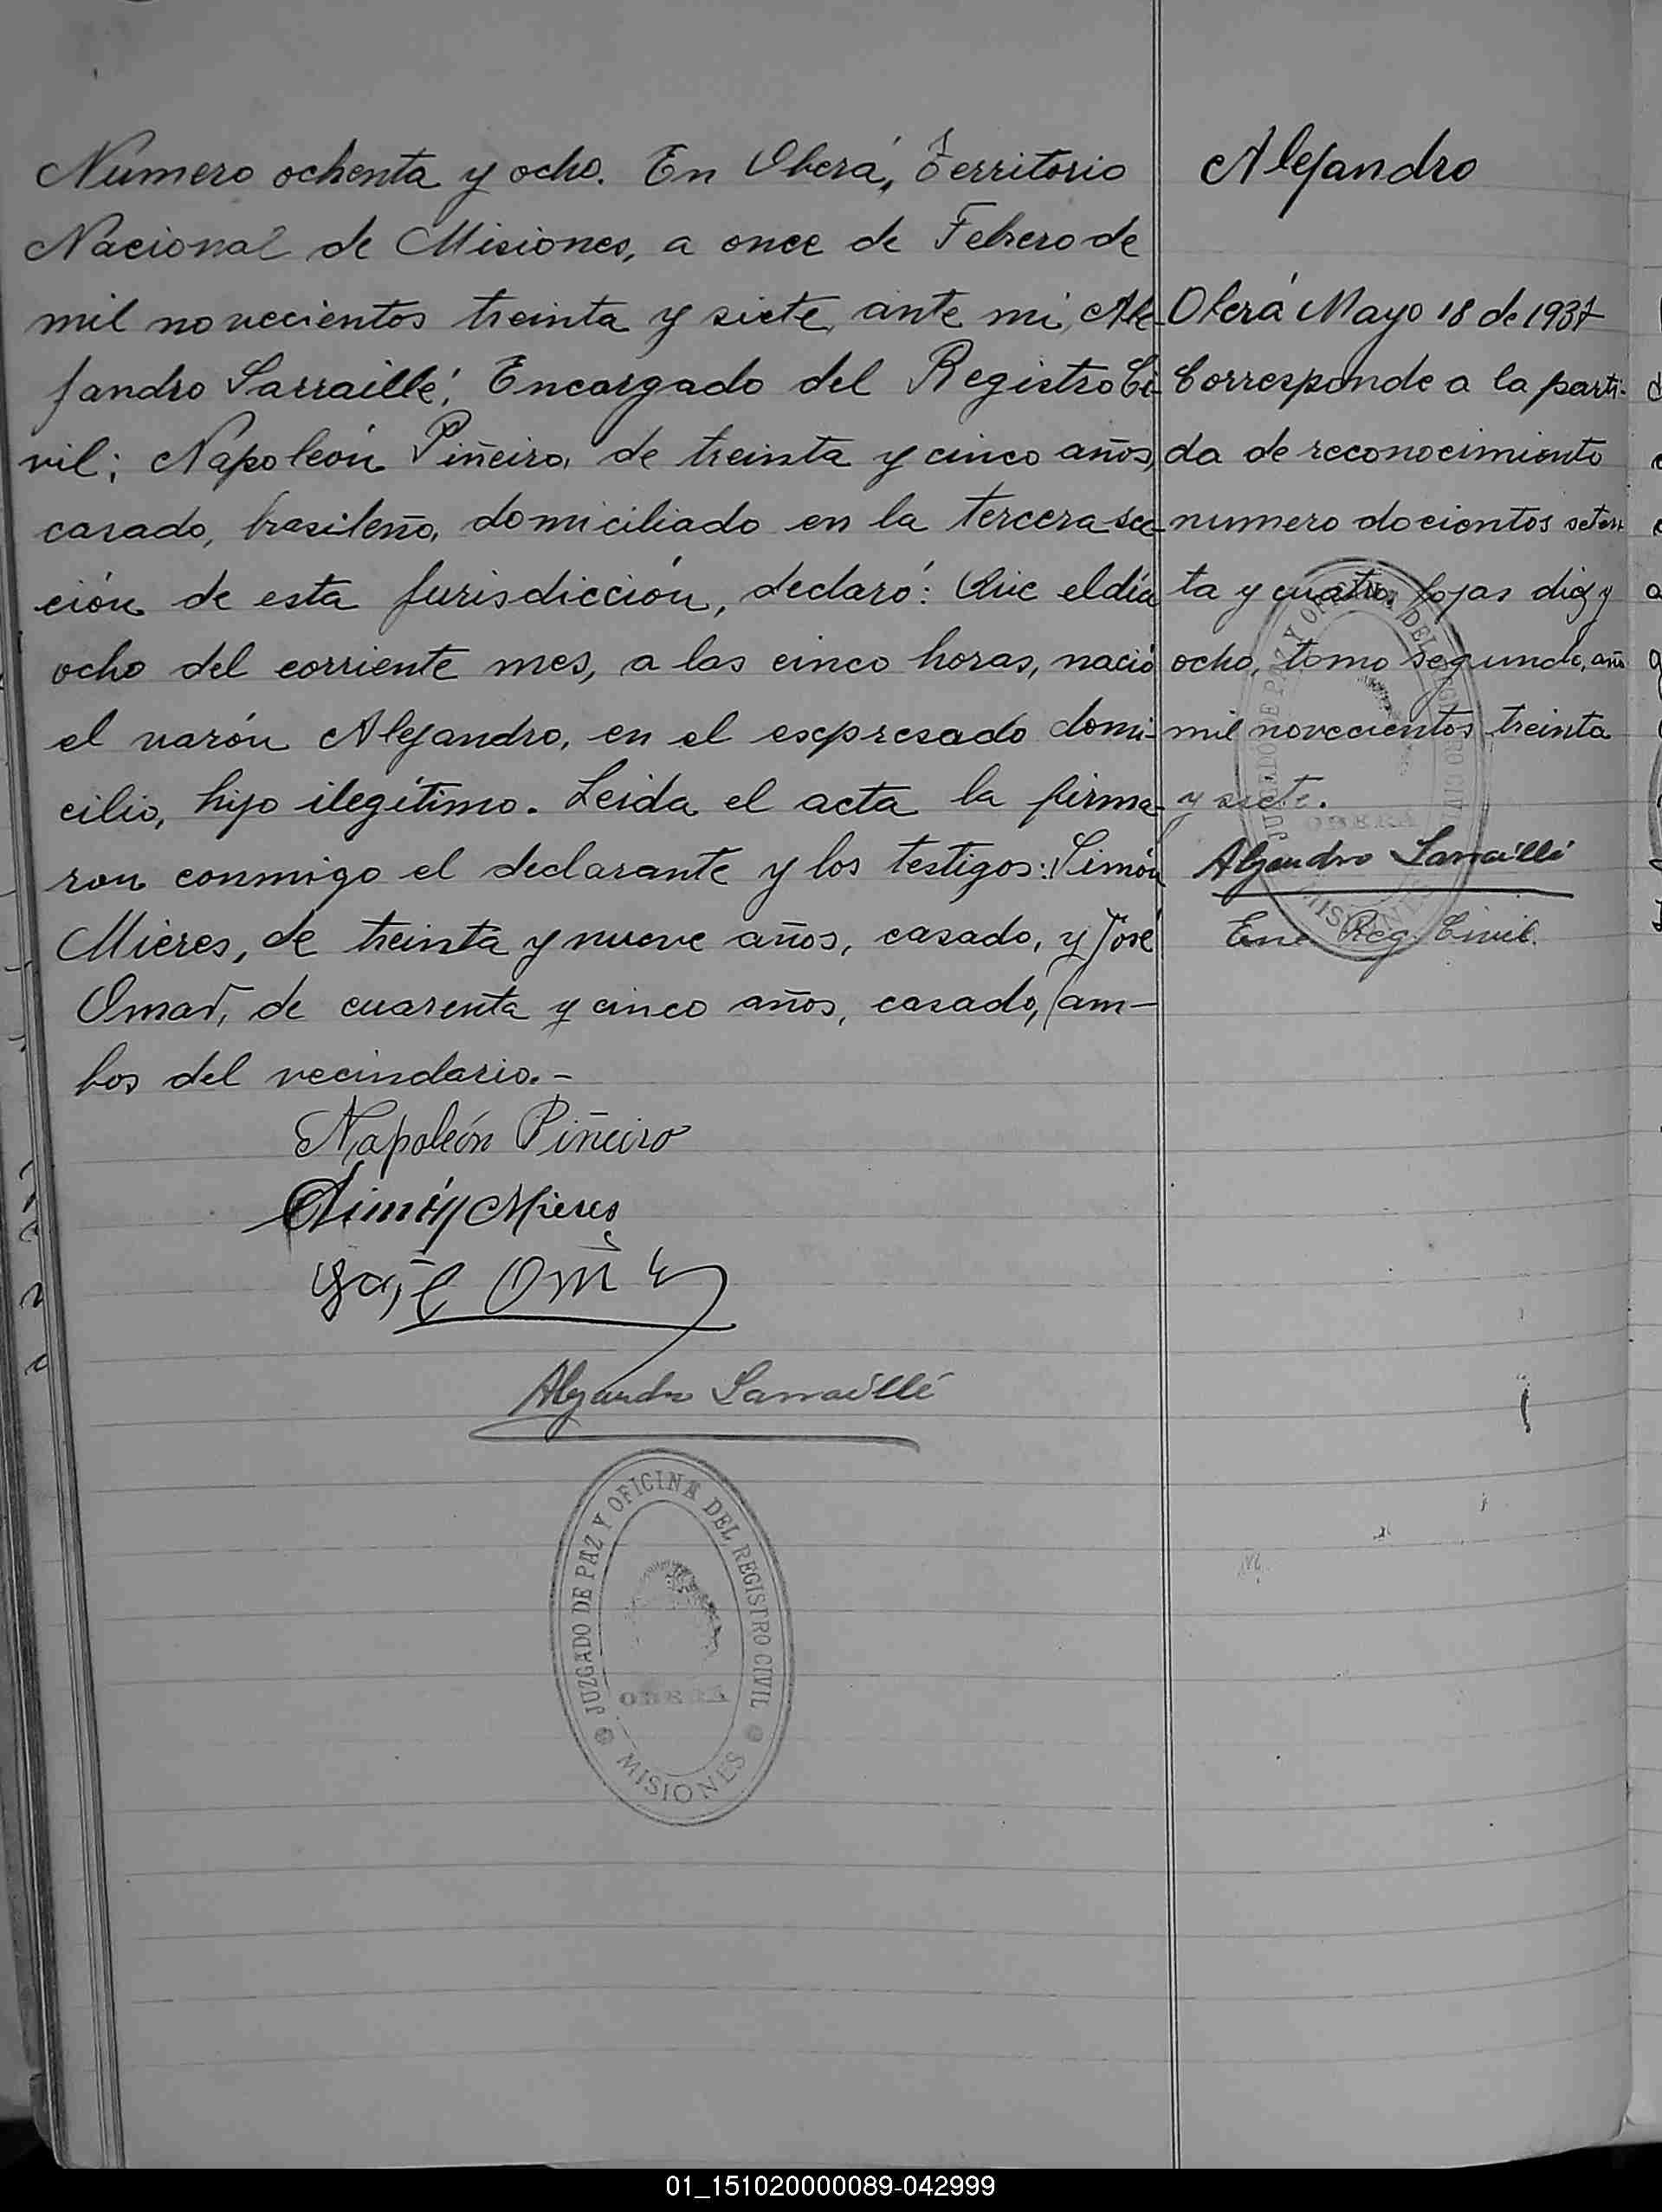 Número ochenta y ocho. En Oberá, Territorio
Nacional de Misiones, a once de Febrero de
mil novecientos treinta y siete, ante mi, Ale-
jandro Sarraillé, Encargado del Registro Ci-
vil; Napoleón Piñeiro, de treinta y cinco años,
casado, brasileño, domiciliado en la tercera sec-
ción de esta jurisdicción, declaró: Que el día
ocho del corriente mes, a las cinco horas, nació
el varón Alejandro, en el expresado domi-
cilio, hijo ilegítimo. Leida el acta la firma-
ron conmigo el declarante y los testigos: Simón
Mieres, de treinta y nueve años, casado, y José
Omar, de cuarenta y cinco años, casado, am-
bos del vecindario.-
Napoleón Piñeiro
Simón Mieres
José Omar
Alejandro Sarraillé
JUZGADO DE PAZ Y OFICINA DEL REGISTRO CIVIL
OBERÁ
MISIONES
Alejandro
Oberá Mayo 18 de 1937
Corresponde a la parti-
da de reconocimiento
numero docientos seten-
ta y cuatro, fojas diez y
ocho, tomo segundo, año
mil novecientos treinta
y siete.
Alejandro Sarraillé
Enc. Reg. Civil.
JUZGADO DE PAZ Y OFICINA DEL REGISTRO CIVIL
OBERÁ
MISIONES
01_151020000089-042999